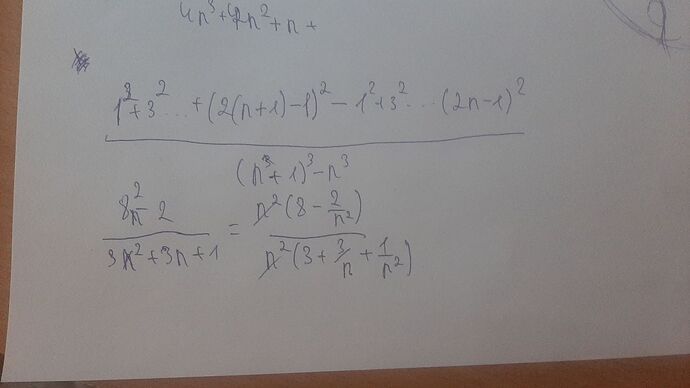 4n³+4n²+n+
1²+3²...+(2(n+1)-1)²-1²+3²...(2n-1)²
(n³+1)³-n³
8n²-2 = n²(8-2/n²)
3n²+3n+1 n²(3+3/n+1/n²)